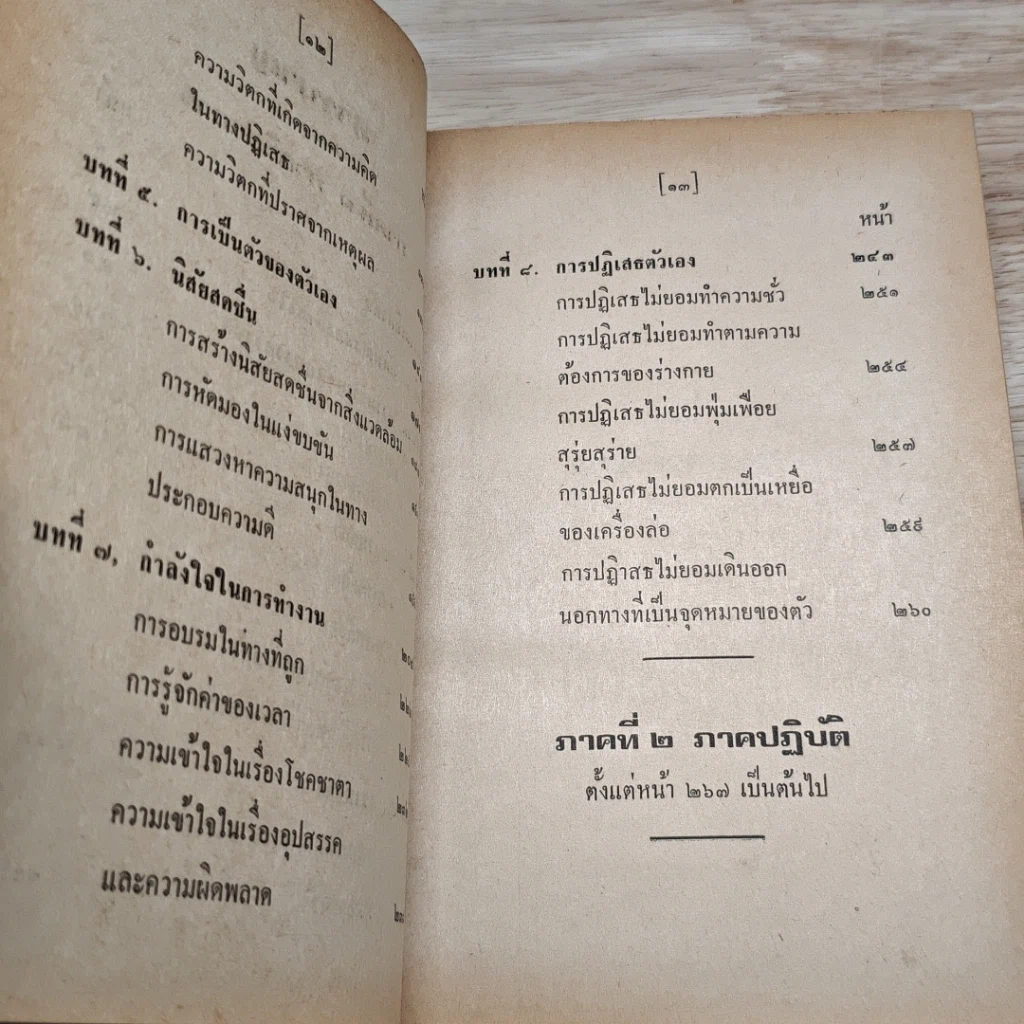 [๑๒]
ความวิตกที่เกิดจากความคิด
ในทางปฏิเสธ
ความวิตกที่ปราศจากเหตุผล
บทที่ ๕. การเป็นตัวของตัวเอง
บทที่ ๖. นิสัยสดชื่น
การสร้างนิสัยสดชื่นจากสิ่งแวดล้อม
การหัดมองในแง่ขบขัน
การแสวงหาความสนุกในทาง
ประกอบความดี
บทที่ ๗, กำลังใจในการทำงาน
การอบรมในทางที่ถูก
การรู้จักค่าของเวลา
ความเข้าใจในเรื่องโชคชาตา
ความเข้าใจในเรื่องอุปสรรค
และความผิดพลาด
[๑๓]
หน้า
บทที่ ๘. การปฏิเสธตัวเอง ๒๔๓
การปฏิเสธไม่ยอมทำความชั่ว ๒๕๑
การปฏิเสธไม่ยอมทำตามความ
ต้องการของร่างกาย ๒๕๔
การปฏิเสธไม่ยอมฟุ่มเฟือย
สุรุ่ยสุร่าย ๒๕๗
การปฏิเสธไม่ยอมตกเป็นเหยื่อ
ของเครื่องล่อ ๒๕๙
การปฏิาสธไม่ยอมเดินออก
นอกทางที่เป็นจุดหมายของตัว ๒๖๐
ภาคที่ ๒ ภาคปฏิบัติ
ตั้งแต่หน้า ๒๖๗ เป็นต้นไป